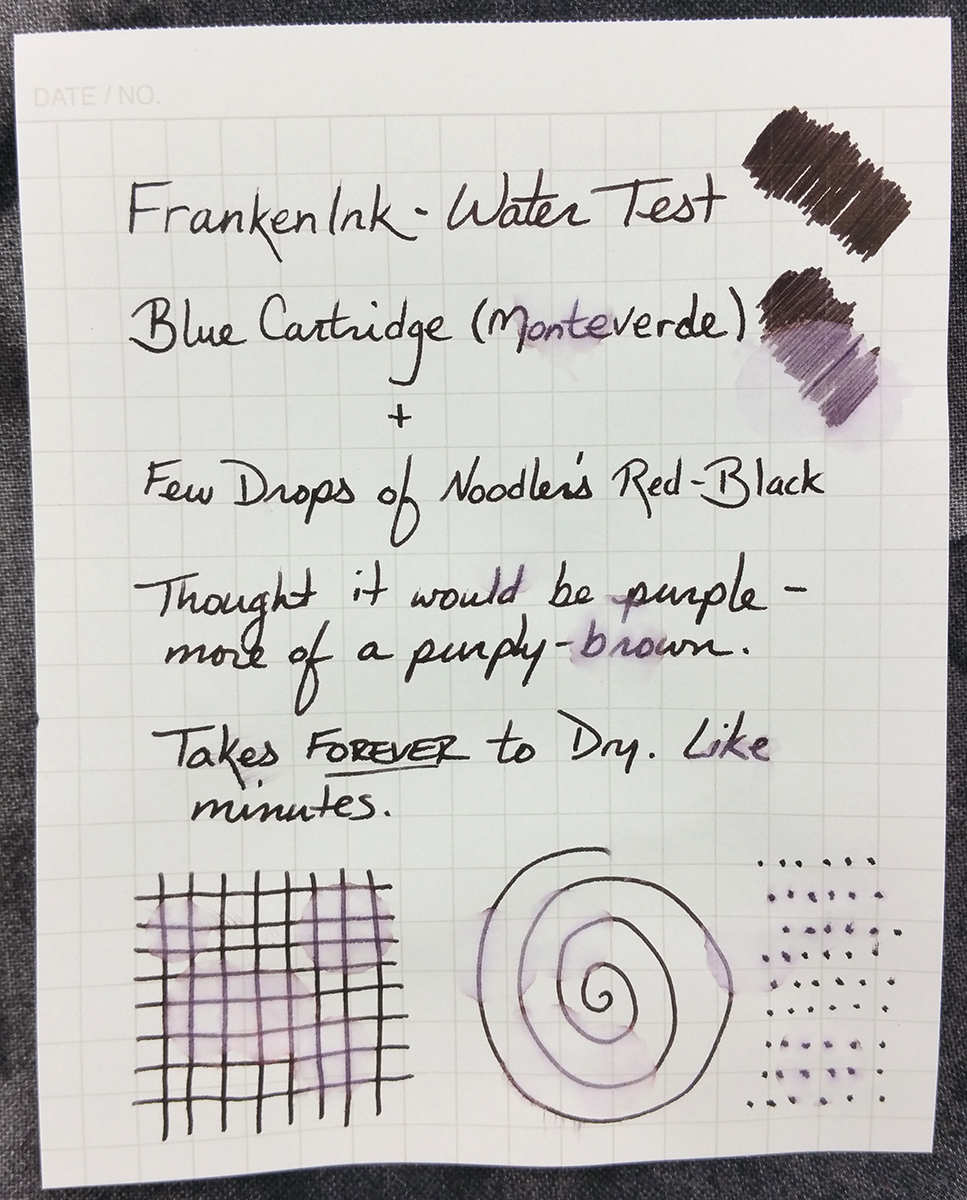 DATE / NO.
FrankenInk - Water Test
Blue Cartridge (Monteverde)
+
Few Drops of Noodler's Red-Black
Thought it would be purple -
more of a purply-brown.
Takes FOREVER to Dry. Like
minutes.